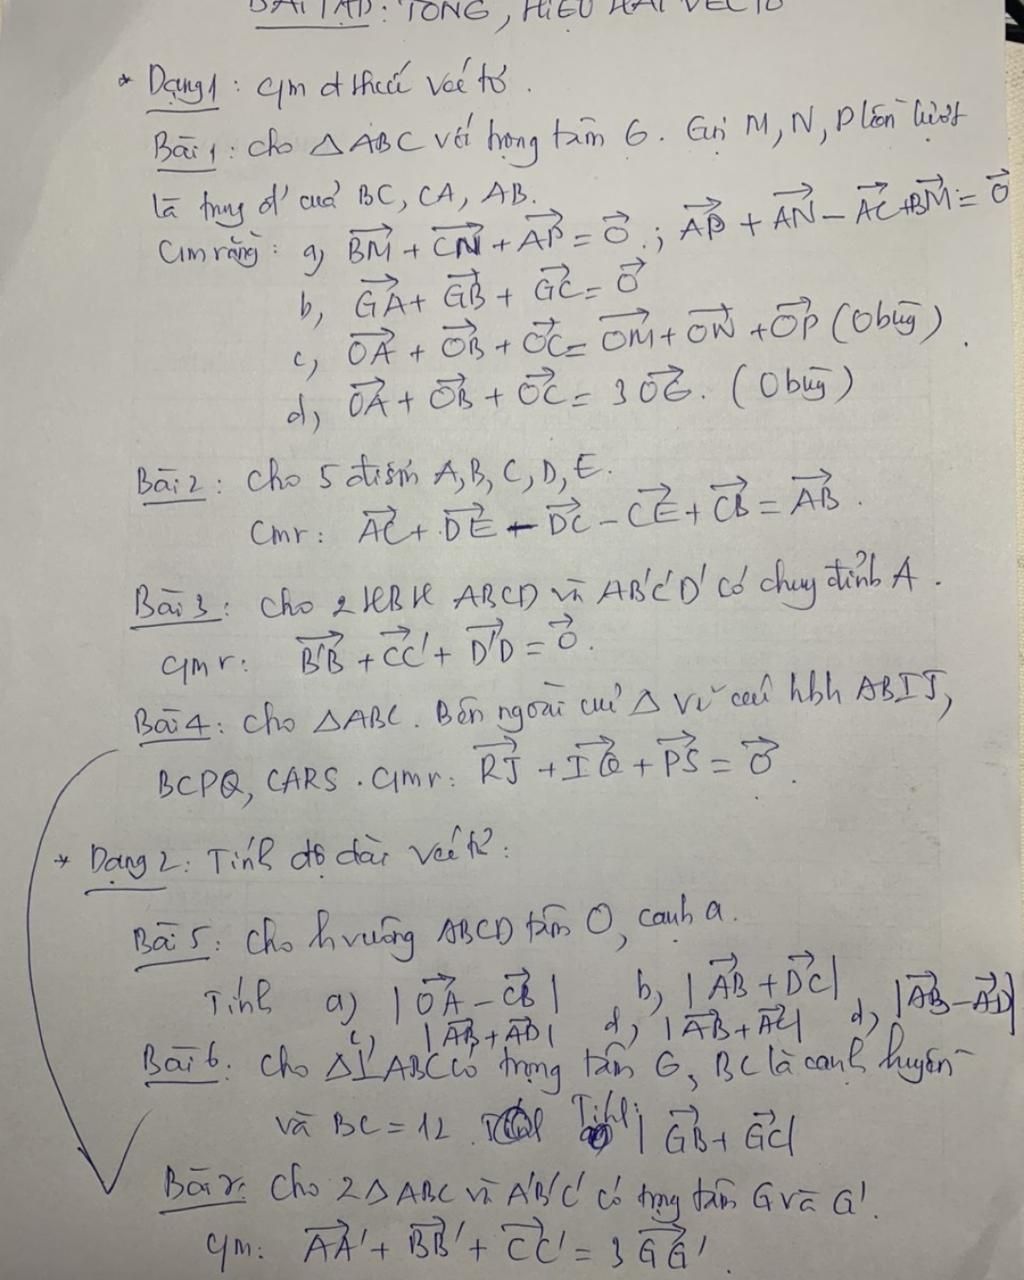 BÀI TẬP: TỔNG, HIỆU HAI VECTO
* Dạng 1: Cm đ thức véc tơ.
Bài 1: Cho △ABC với trọng tâm G. Gọi M, N, P lần lượt
là trung đ' của BC, CA, AB.
Cm rằng: a, $\overrightarrow{BM}+\overrightarrow{CN}+\overrightarrow{AP}=\overrightarrow{0}$; $\overrightarrow{AP}+\overrightarrow{AN}-\overrightarrow{AC}+\overrightarrow{BM}=\overrightarrow{0}$
b, $\overrightarrow{GA}+\overrightarrow{GB}+\overrightarrow{GC}=\overrightarrow{0}$
c, $\overrightarrow{OA}+\overrightarrow{OB}+\overrightarrow{OC}=\overrightarrow{OM}+\overrightarrow{ON}+\overrightarrow{OP}$ (O bkỳ).
d, $\overrightarrow{OA}+\overrightarrow{OB}+\overrightarrow{OC}=3\overrightarrow{OG}$. (O bkỳ)
Bài 2: Cho 5 điểm A, B, C, D, E.
Cmr: $\overrightarrow{AC}+\overrightarrow{DE}-\overrightarrow{DC}-\overrightarrow{CE}+\overrightarrow{CB}=\overrightarrow{AB}$.
Bài 3: Cho 2 HBH ABCD và AB'C'D' có chung đỉnh A.
Cmr: $\overrightarrow{B'B}+\overrightarrow{CC'}+\overrightarrow{D'D}=\overrightarrow{0}$.
Bài 4: Cho △ABC. Bên ngoài của △ vẽ các hbh ABIJ,
BCPQ, CARS. Cmr: $\overrightarrow{RJ}+\overrightarrow{IQ}+\overrightarrow{PS}=\overrightarrow{0}$.
* Dạng 2: Tính độ dài véc tơ:
Bài 5: Cho hvuông ABCD tâm O, cạnh a.
Tính a) $|\overrightarrow{OA}-\overrightarrow{CB}|$ b, $|\overrightarrow{AB}+\overrightarrow{DC}|$
c, $|\overrightarrow{AB}+\overrightarrow{AD}|$ d, $|\overrightarrow{AB}+\overrightarrow{AC}|$ d, $|\overrightarrow{AB}-\overrightarrow{AD}|$
Bài 6: Cho △⊥ ABC có trọng tâm G, BC là cạnh huyền
và BC = 12. Tính: $|\overrightarrow{GB}+\overrightarrow{GC}|$
Bài 7: Cho 2△ ABC và A'B'C' có trọng tâm G và G'.
Cm: $\overrightarrow{AA'}+\overrightarrow{BB'}+\overrightarrow{CC'}=3\overrightarrow{GG'}$.